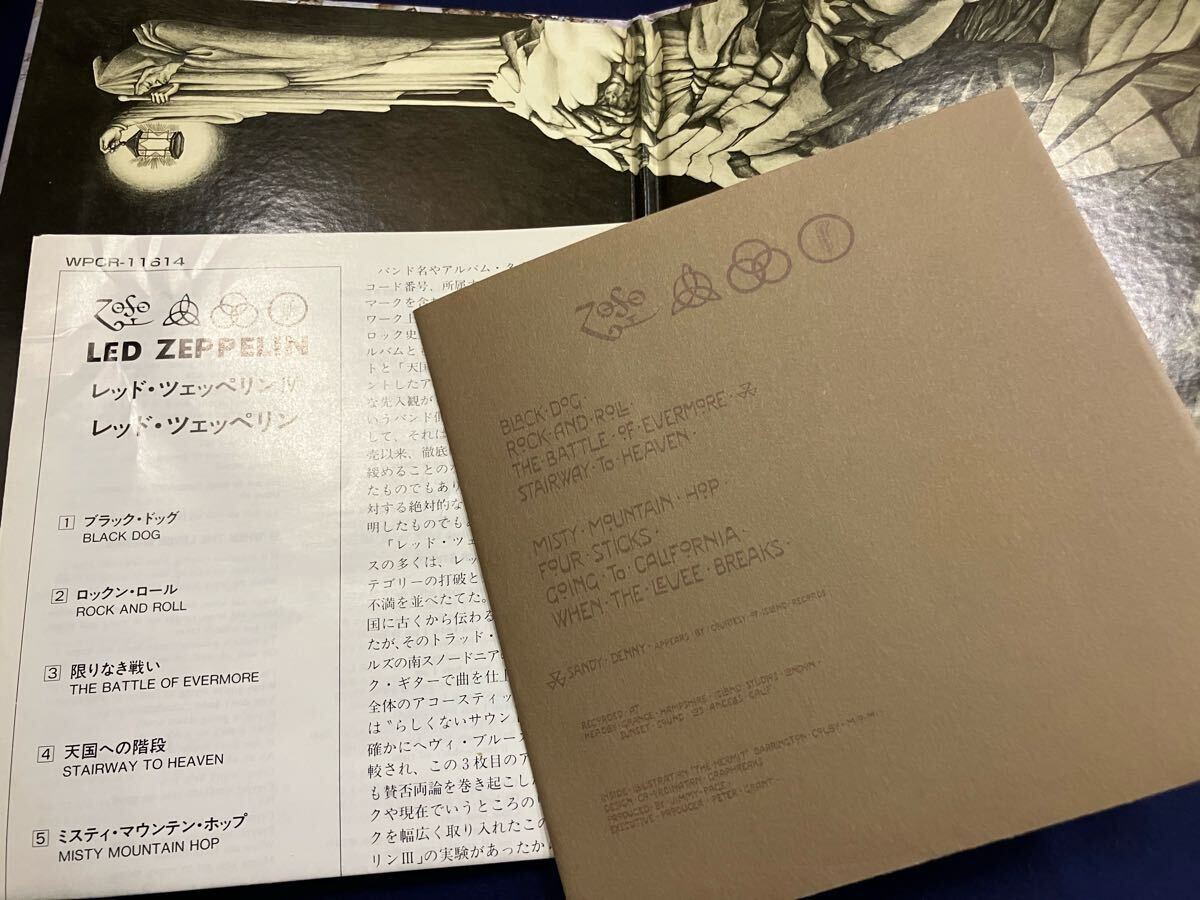 WPCR-11614
ZoSo
LED ZEPPELIN
レッド・ツェッペリンIV
レッド・ツェッペリン
1 ブラック・ドッグ
BLACK DOG
2 ロックン・ロール
ROCK AND ROLL
3 限りなき戦い
THE BATTLE OF EVERMORE
4 天国への階段
STAIRWAY TO HEAVEN
5 ミスティ・マウンテン・ホップ
MISTY MOUNTAIN HOP
バンド名やアルバム・タ
コード番号、所属
マークを含
ワーク
ロック史
ルバムと
トと「天国
ントしたア
な先入観が
いうバンド
して、それは
売以来、徹底
緩めることのな
たものでもあり
対する絶対的な
明したものでも
『レッド・ツェ
スの多くは、レッ
テゴリーの打破と
不満を並べたてた。
国に古くから伝わる
たが、そのトラッド・
ルズの南スノードニア
ク・ギターで曲を仕上
全体のアコースティッ
は“らしくないサウン
確かにヘヴィ・ブルース
較され、この3枚目のア
も賛否両論を巻き起こし
クや現在でいうところの
クを幅広く取り入れたこの
リンIII」の実験があったか
ZoSo
BLACK·DOG·
ROCK·AND·ROLL·
THE·BATTLE·OF·EVERMORE·
STAIRWAY·TO·HEAVEN·
MISTY·MOUNTAIN·HOP·
FOUR·STICKS·
GOING·TO·CALIFORNIA·
WHEN·THE·LEVEE·BREAKS·
SANDY·DENNY·APPEARS·BY·COURTESY·OF·ISLAND·RECORDS
RECORDED·AT
HEADLEY·GRANGE·HAMPSHIRE·ISLAND·STUDIOS·LONDON·
SUNSET·SOUND·LOS·ANGELES·CALIF
INSIDE·ILLUSTRATION·"THE·HERMIT"·BARRINGTON·COLBY·M·O·M·
DESIGN·CO-ORDINATION·GRAPHREAKS
PRODUCED·BY·JIMMY·PAGE·
EXECUTIVE·PRODUCER·PETER·GRANT·